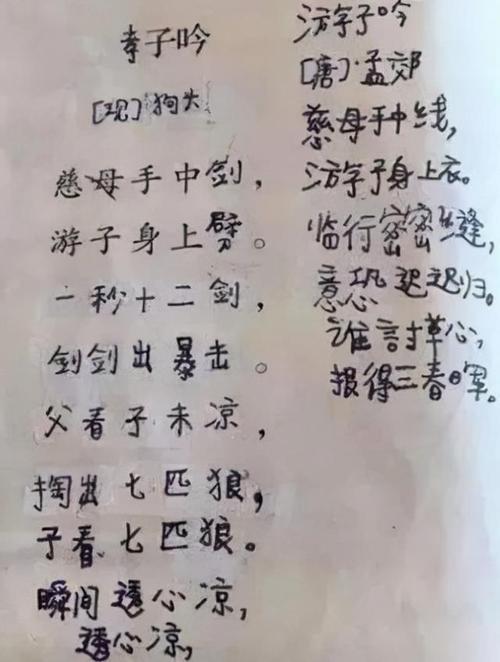 孝子吟
[现]狗头
慈母手中剑，
游子身上劈。
一秒十二剑，
剑剑出暴击。
父看子未凉，
掏出七匹狼，
子看七匹狼。
瞬间透心凉，
透心凉，
游子吟
[唐]·孟郊
慈母手中线，
游子身上衣。
临行密密缝，
意恐迟迟归。
谁言寸草心，
报得三春晖。